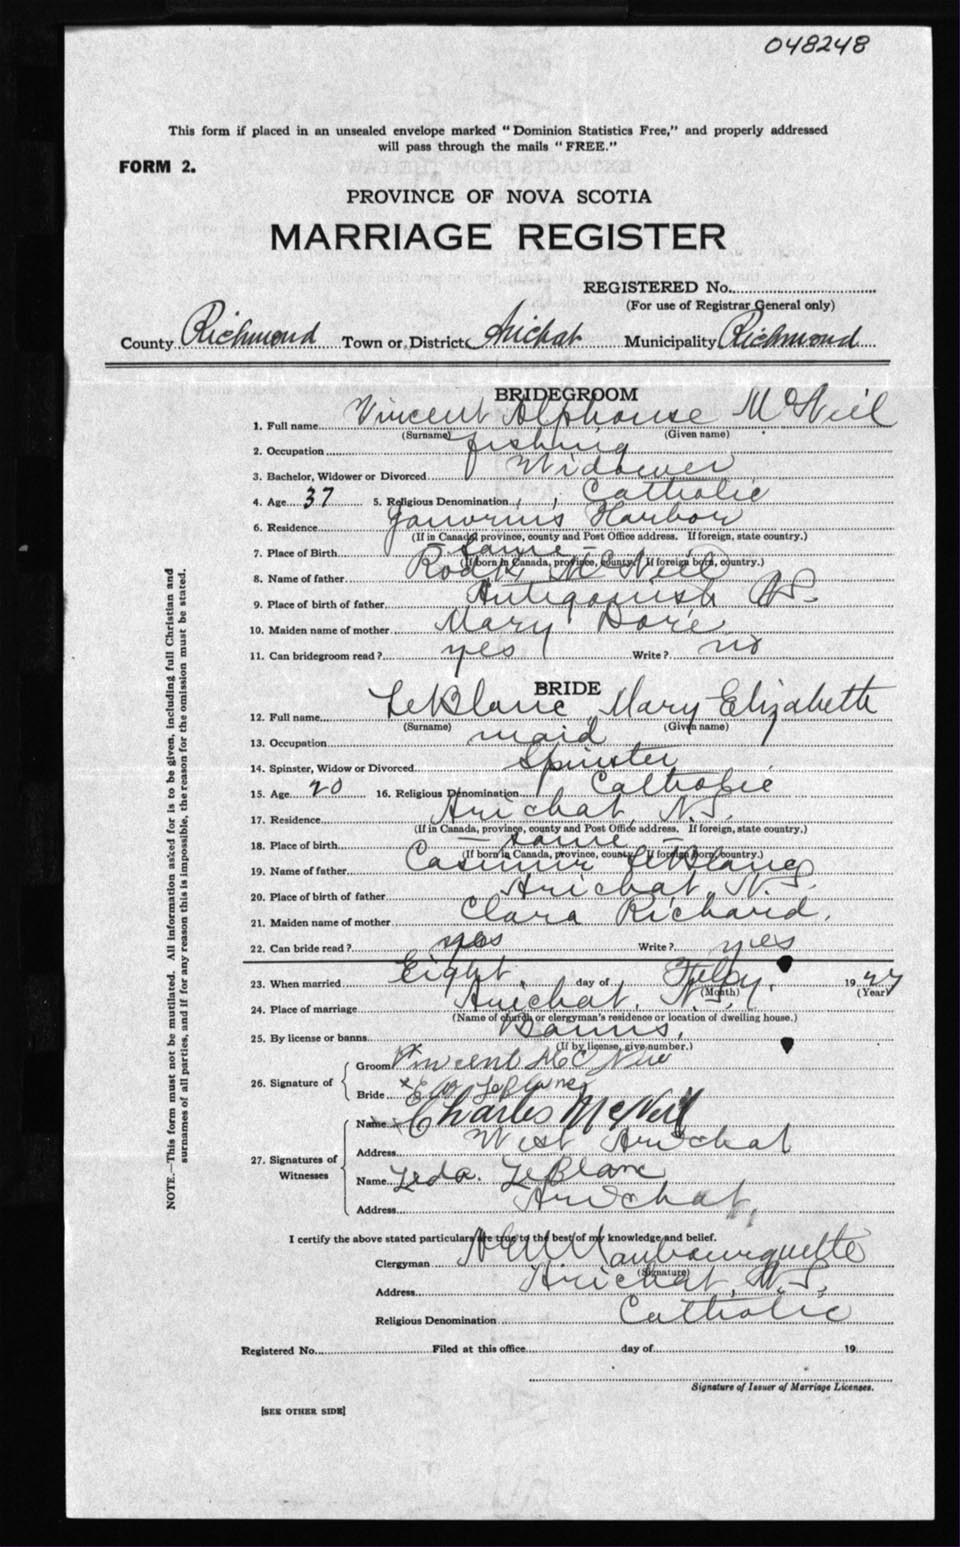 048248
This form if placed in an unsealed envelope marked "Dominion Statistics Free," and properly addressed
will pass through the mails "FREE."
FORM 2.
PROVINCE OF NOVA SCOTIA
MARRIAGE REGISTER
REGISTERED No.
(For use of Registrar General only)
County Richmond Town or District Arichat Municipality Richmond
BRIDEGROOM
1. Full name Vincent Alphonse McNeil
(Surname) (Given name)
2. Occupation fishing
3. Bachelor, Widower or Divorced Widower
4. Age 37 5. Religious Denomination Catholic
6. Residence Janvrins Harbor
(If in Canada, province, county and Post Office address. If foreign, state country.)
7. Place of Birth – Same –
(If born in Canada, province, county. If foreign born, country.)
8. Name of father McNeil
9. Place of birth of father Antigonish N.S.
10. Maiden name of mother Mary Doré
11. Can bridegroom read? yes Write? no
BRIDE
12. Full name LeBlanc Mary Elizabeth
(Surname) (Given name)
13. Occupation maid
14. Spinster, Widow or Divorced Spinster
15. Age 20 16. Religious Denomination Catholic
17. Residence Arichat, N.S.
(If in Canada, province, county and Post Office address. If foreign, state country.)
18. Place of birth – same –
(If born in Canada, province, county. If foreign born, country.)
19. Name of father Casimir LeBlanc
20. Place of birth of father Arichat, N.S.
21. Maiden name of mother Clara Richard.
22. Can bride read? yes Write? yes
23. When married Eight day of 1927
(Month) (Year)
24. Place of marriage Arichat, N.S.
(Name of church or clergyman's residence or location of dwelling house.)
25. By license or banns Banns.
(If by license, give number.)
26. Signature of
Groom Vincent McNeil
Bride LeBlanc
27. Signatures of Witnesses
Name Charles McNeil
Address West Arichat
Name Leda LeBlanc
Address Arichat,
I certify the above stated particulars are true to the best of my knowledge and belief.
Clergyman Maubourguette
(Signature)
Address Arichat, N.S.
Religious Denomination Catholic
Registered No. Filed at this office day of 19
Signature of Issuer of Marriage Licenses.
[SEE OTHER SIDE]
NOTE.—This form must not be mutilated. All information asked for is to be given, including full Christian and
surnames of all parties, and if for any reason this is impossible, the reason for the omission must be stated.